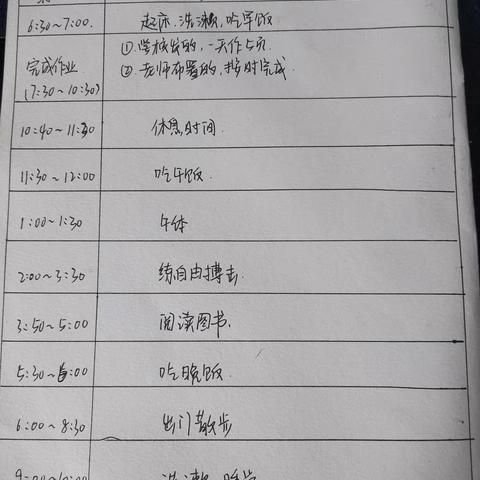 6:30~7:00. 起床,洗漱,吃早饭
①.学校发的,一天作5页
完成作业 ②.老师布置的,按时完成.
(7:30~10:30)
10:40~11:30 休息时间.
11:30~12:00 吃午饭.
1:00~1:30 午休
2:00~3:30 练自由搏击.
3:50~5:00 阅读图书.
5:30~6:00 吃晚饭.
6:00~8:30 出门散步
洗漱